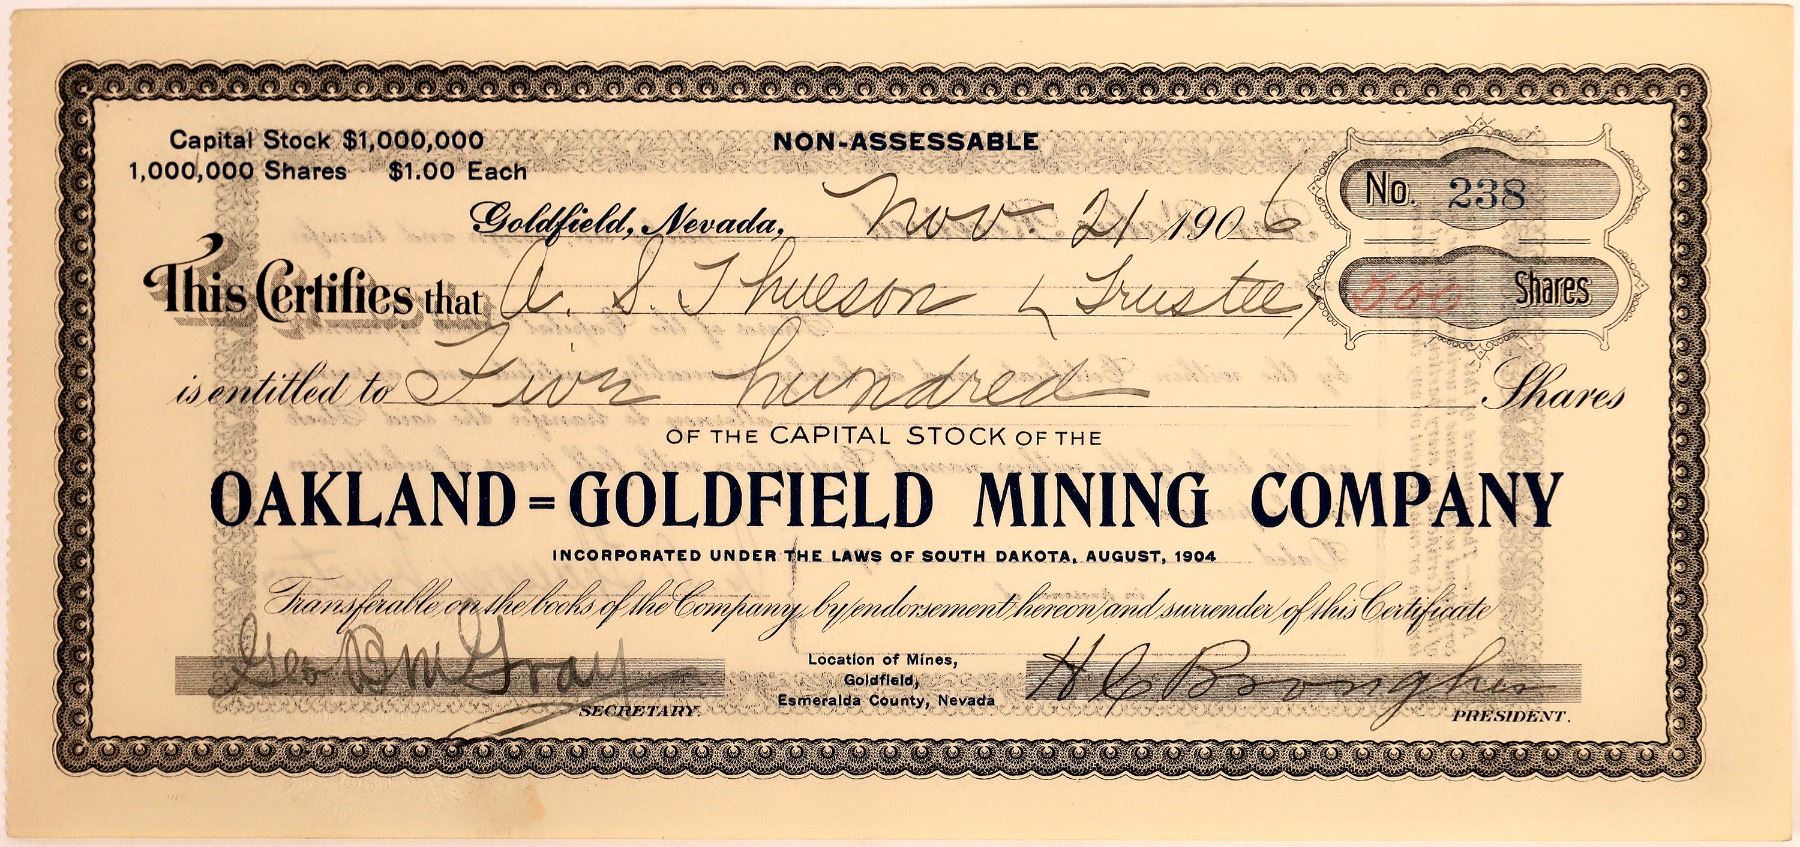 Capital Stock $1,000,000
1,000,000 Shares $1.00 Each
NON-ASSESSABLE
No. 238
Goldfield, Nevada, Nov. 21 1906
This Certifies that A. S. Thueson (Trustee)
500 Shares
is entitled to Five hundred Shares
OF THE CAPITAL STOCK OF THE
OAKLAND=GOLDFIELD MINING COMPANY
INCORPORATED UNDER THE LAWS OF SOUTH DAKOTA, AUGUST, 1904
Transferable on the books of the Company by endorsement hereon and surrender of this Certificate
Geo
SECRETARY.
Location of Mines,
Goldfield,
Esmeralda County, Nevada
H C Brougher
PRESIDENT.